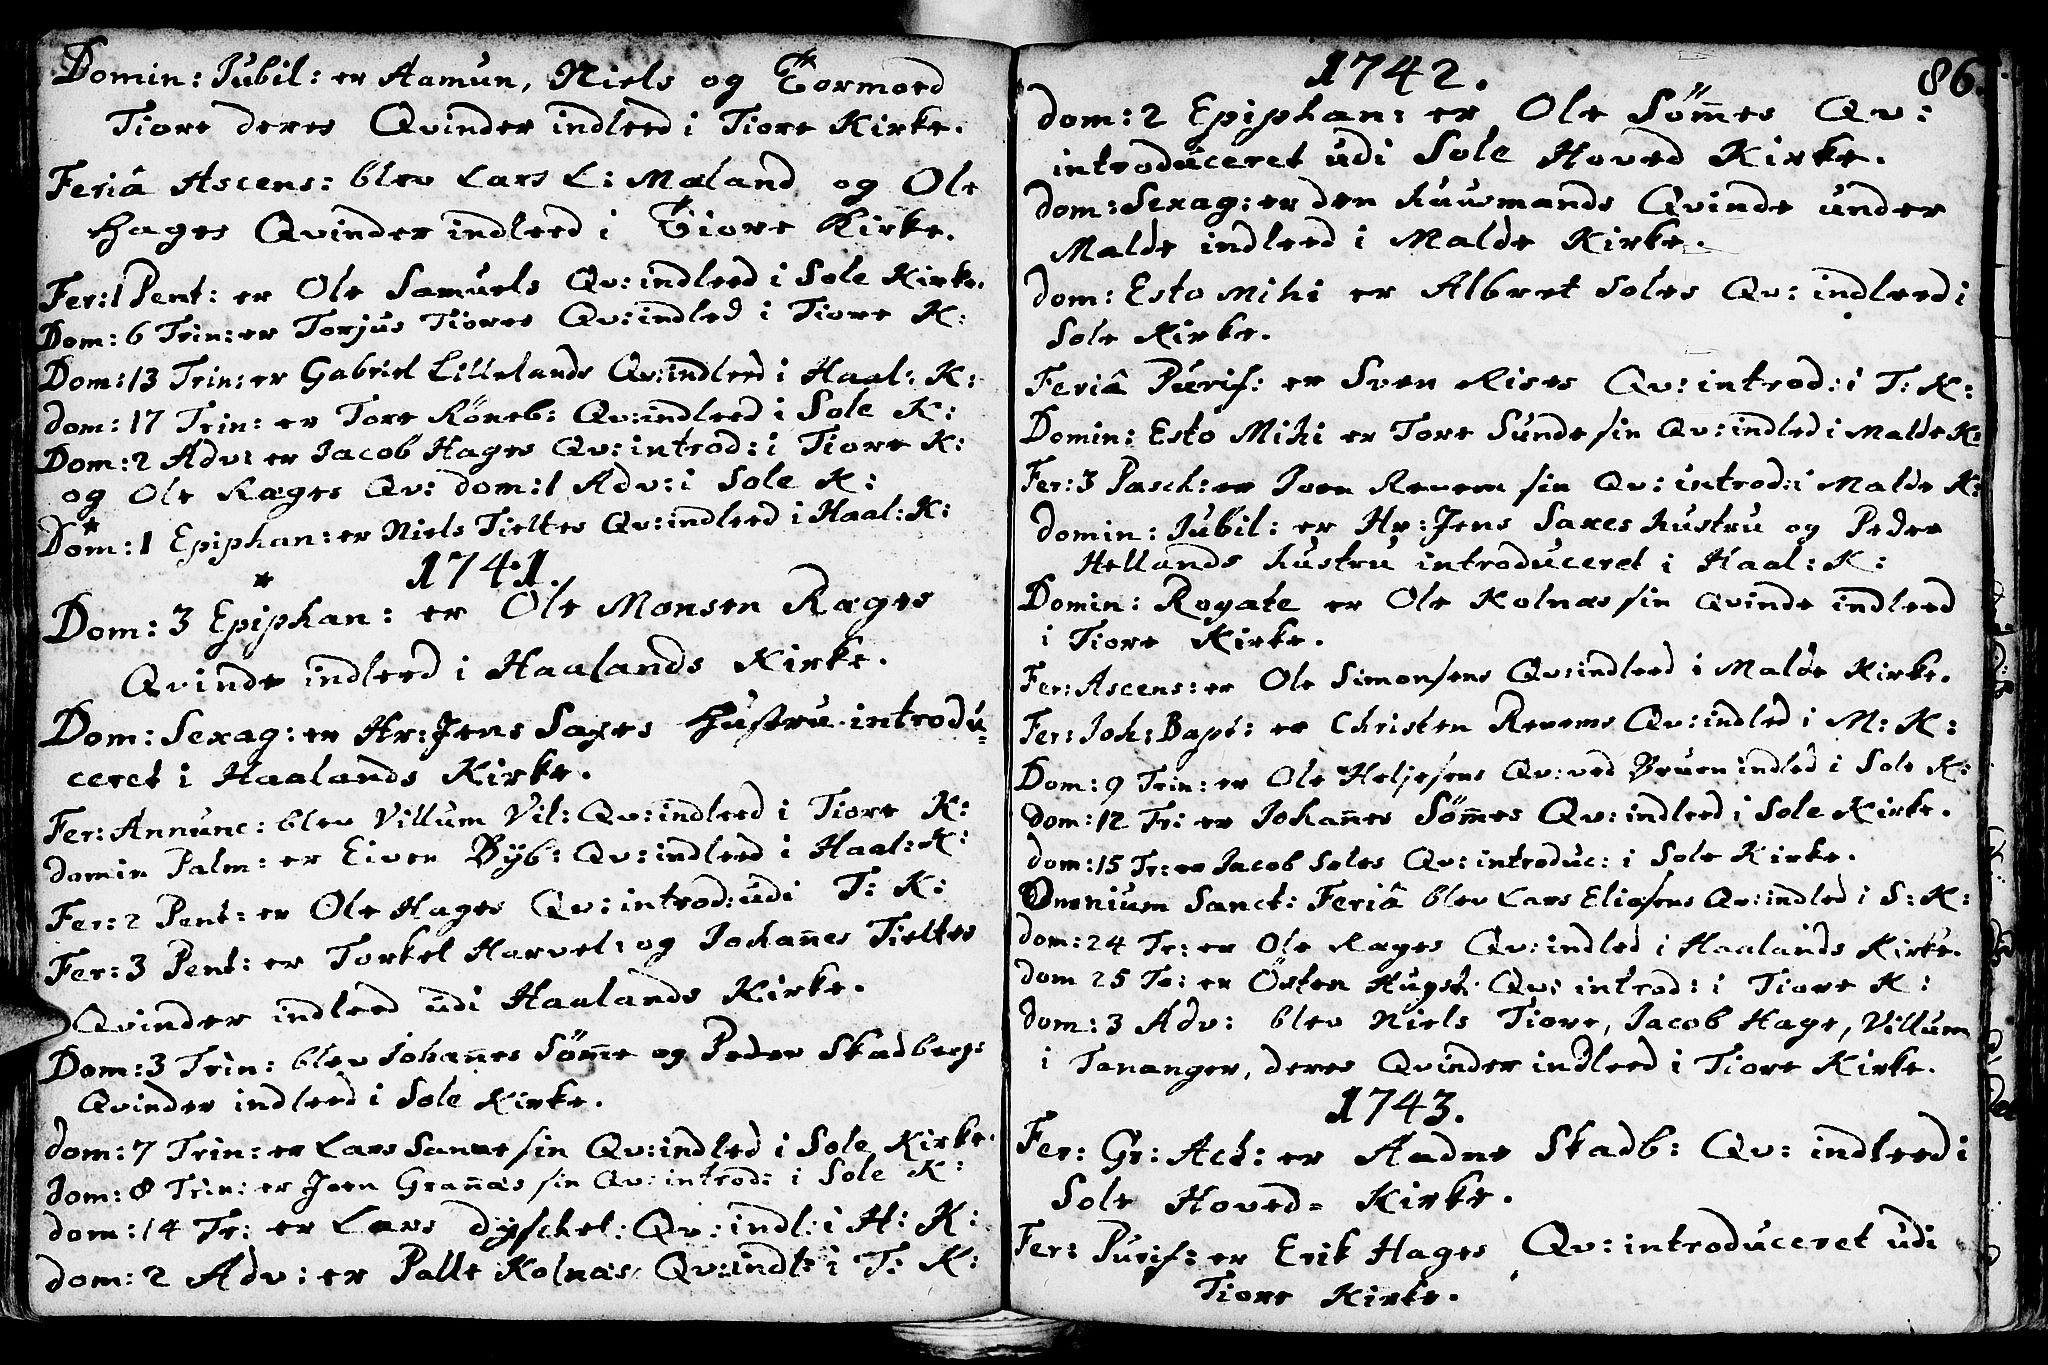 Domin: Jubil: er Aamun, Niels og Tormoed
Tiore deres Qvinder indleed i Tiore Kirke.
Feriâ Ascens: blev Lars L: Mæland og Ole
Hages Qvinder indleed i Tiore Kirke.
Fer: 1 Pent: er Ole Samuels Qv: indleed i Sole Kirke.
Dom: 6 Trin: er Torjus Tiores Qv: indled i Tiore K:
Dom: 13 Trin: er Gabriel Lillelands Qv: indleed i Haal: K:
dom: 17 Trin: er Tore Röneb: Qv: indleed i Sole K:
Dom: 2 Adv: er Jacob Hages Qv: introd: i Tiore K:
og Ole Ræges Qv: dom: 1 Adv: i Sole K:
Dom: 1 Epiphan: er Niels Tieltes Qv: indleed i Haal: K:
1741.
Dom: 3 Epiphan: er Ole Monsen Ræges
Qvinde indleed i Haalands Kirke.
Dom: Sexag: er Hr: Jens Saxes Hustru introdu=
ceret i Haalands Kirke.
Fer: Annunc: blev Villum Vil: Qv: indleed i Tiore K:
domin Palm: er Eiven Byb: Qv: indleed i Haal: K:
Fer: 2 Pent: er Ole Hages Qv: introd: udi T: K:
Fer: 3 Pent: er Torkel Harvel: og Johañes Tieltes
Qvinder indleed udi Haalands Kirke.
Dom: 3 Trin: blev Johañes Söm̃e og Peder Skadbergs
Qvinder indleed i Sole Kirke.
dom: 7 Trin: er Lars Sanne sin Qv: indled i Sole Kirke.
dom: 8 Trin: er Joen Grañæs sin Qv: introd: i Sole K:
dom: 14 Tr: er Lars Dyschel: Qv: indl: i H: K:
dom: 2 Adv: er Palle Kolnæs Qv: indl: i T: K:
86.
1742.
dom: 2 Epiphan: er Ole Söm̃es Qv:
introduceret udi Sole Hoved Kirke.
dom: Sexag: er den huusmands Qvinde under
Malde indleed i Malde Kirke.
dom: Esto Mihi er Albret Soles Qv: indleed i
Sole Kirke.
Feriâ Purif: er Sven Rises Qv: introd: i T: K:
Domin: Esto Mihi er Tore Sunde sin Qv: indled i Malde K:
Fer: 3 Pasch: er Joen Revem sin Qv: introd: i Malde K:
domin: Jubil: er Hr: Jens Saxes hustru og Peder
Hellands hustru introduceret i Haal: K:
Domin: Rogate er Ole Kolnæs sin Qvinde indleed
i Tiore Kirke.
Fer: Ascens: er Ole Simonsens Qv: indleed i Malde Kirke.
Fer: Joh: Bapt: er Christen Revems Qv: indled i M: K:
Dom: 9 Trin: er Ole Heljesens Qv: ved Bruen indled i Sole K:
dom: 12 Tr: er Johañes Söm̃es Qv: indleed i Sole Kirke.
dom: 15 Tr: er Jacob Soles Qv: introduc: i Sole Kirke.
Omnium Sanct: Feriâ blev Lars Eliasens Qv: indled i S: K:
dom: 24 Tr: er Ole Ræges Qv: indled i Haalands Kirke.
dom 25 Tr: er Östen Hugst: Qv: introd: i Tiore K:
dom: 3 Adv: blev Niels Tiore, Jacob Hage, Villum
i Tananger, deres Qvinder indleed i Tiore Kirke.
1743.
Fer: Gr: Ach: er Aadne Skadb: Qv: indleed i
Sole Hoved= Kirke.
Fer: Purif: er Erik Hages Qv: introduceret udi
Tiore Kirke.